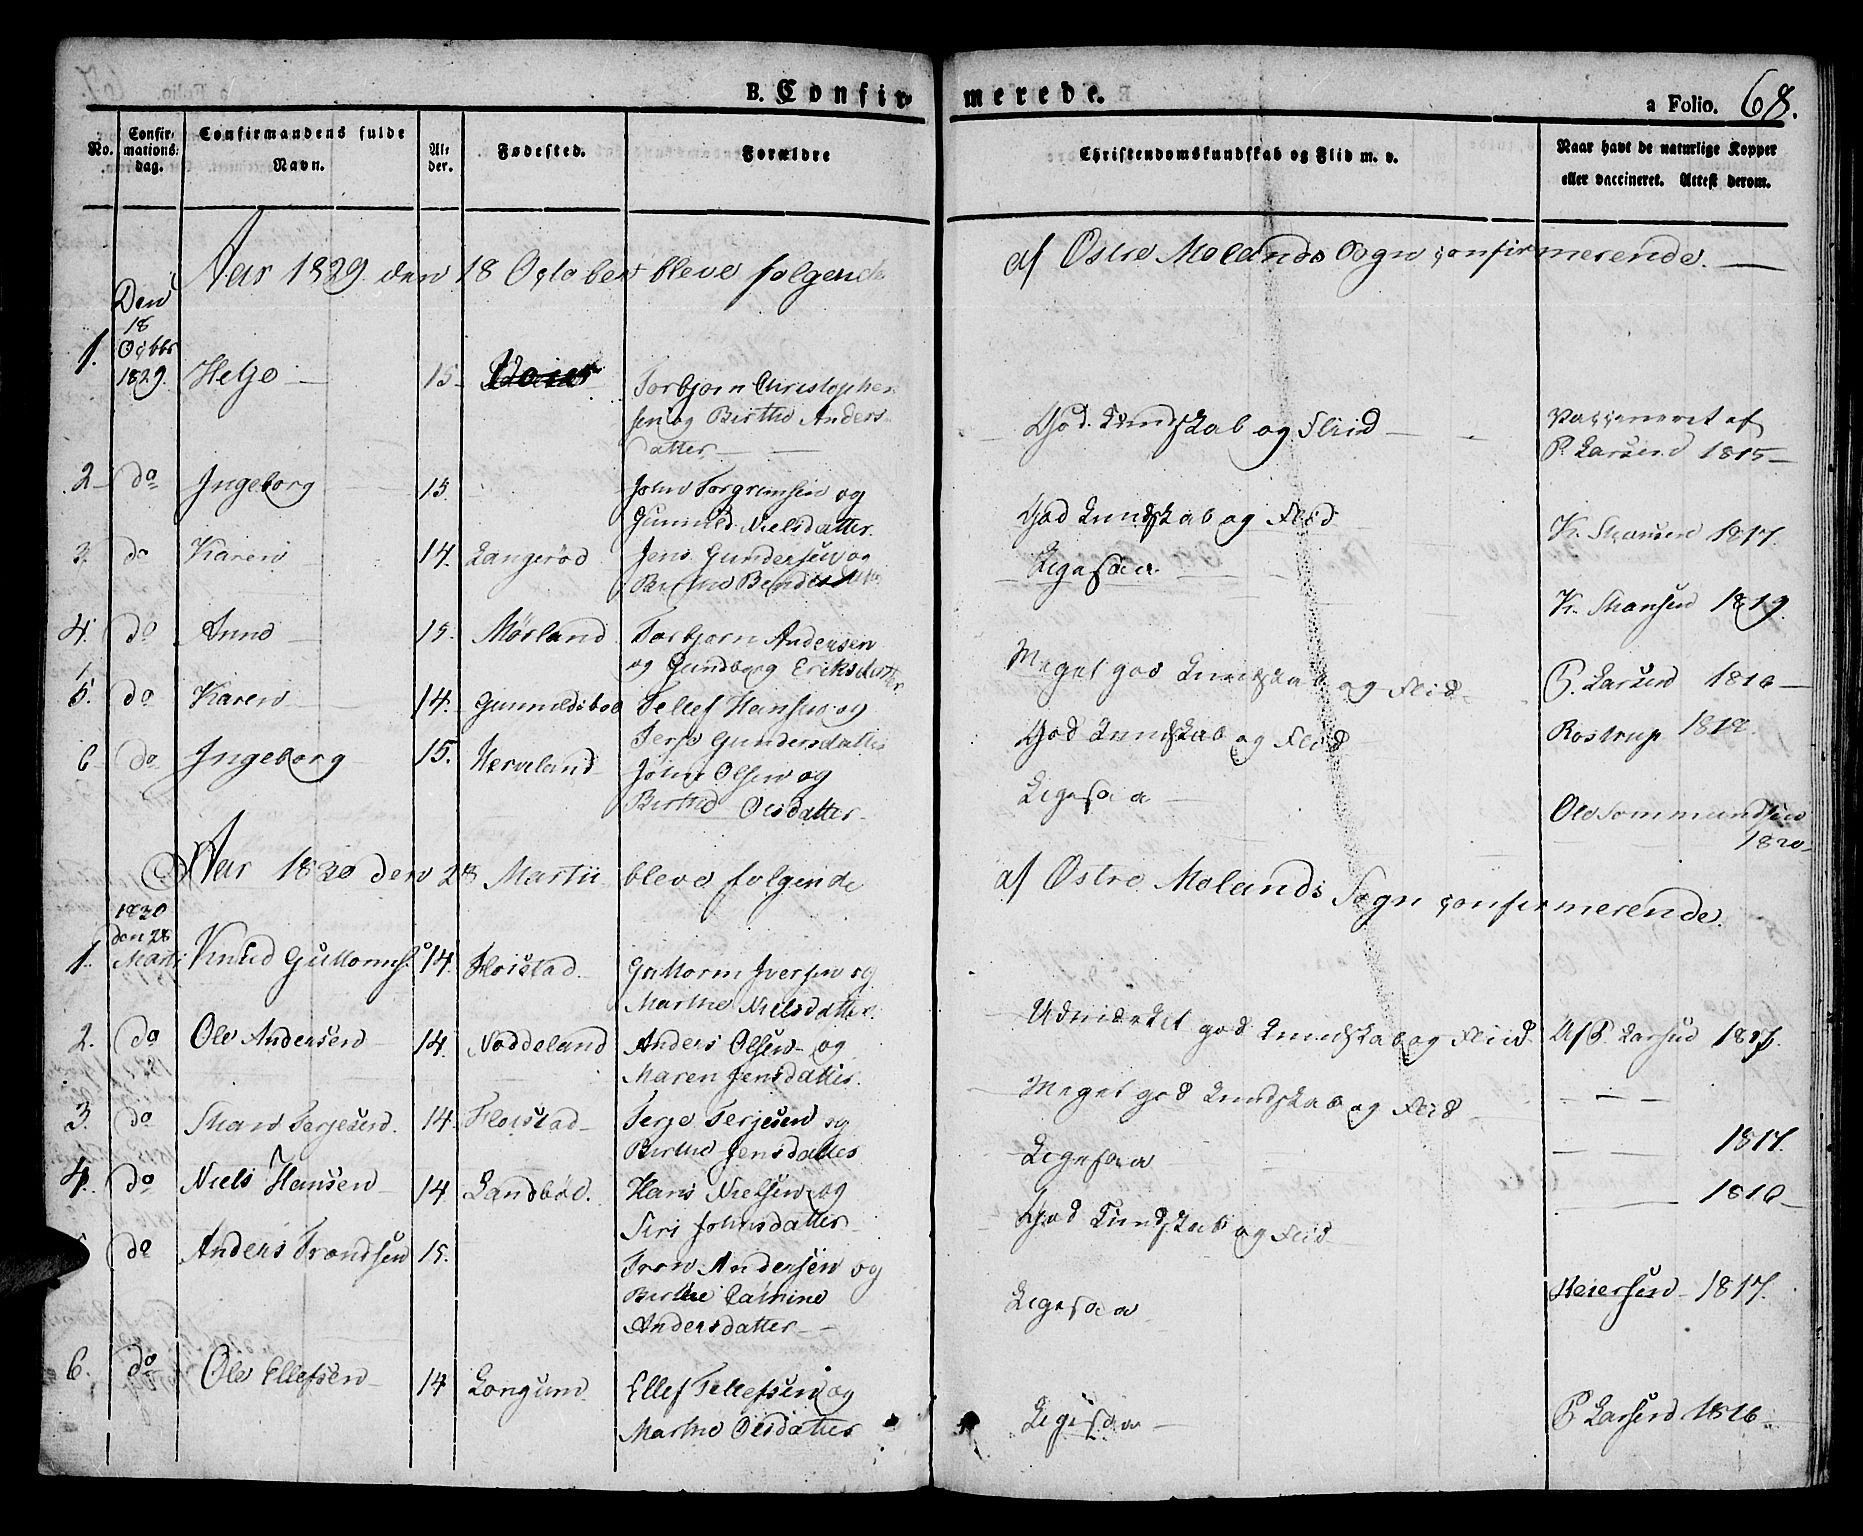 B. Confirmerede.
a Folio. 68.
No.
Confirmations-dag.
Confirmandens fulde Navn.
Alder.
Fødested.
Forældre
Christendomskundskab og Flid m. v.
Naar havt de naturlige Kopper
eller vaccineret. Attest derom.
Aar 1829 den 18 October bleve følgende af Østre Molands Sogn confirmerende.
Den
18
Octbr
1829.
1. Helje 15. Torbjørn Christopher
sen og Birthe Anders
datter
God Kundskab og Fliid
Vacceneret af
P. Larsend 1815
2 do Ingeborg 15. John Torgrimsen og
Gunnild Nielsdatter.
God Kundskab og Flid
K. Thansen 1817.
3. do Karen 14. Langerød Jens Gundersen og
Birthe Bendtsdatter
Ligesaa
K. Thansen 1819.
4. do Anne 15. Mørland Torbjørn Andersen
og Gundborg Eriksdatter
Meget god Kundskab og Flid
P. Larsend 1816
5. do Karen 14. Gunnildsboe Tellef Hansen og
Terje Gundersdatter
God Kundskab og Flid
Rostrup 1818.
6 do Ingeborg 15. Herveland John Olsen og
Birthe Olsdatter
Ligesaa
Ole Tommundsen
1820
Aar 1830 den 28 Martii bleve følgende af Østre Molands Sogn confirmerende.
1830
den 28
Marti
1. Knud Guttorms. 14. Floistad Guttorm Iversen og
Marthe Nielsdatter.
Udmærket god Kundskab og Fliid
Af P. Larsend 1817.
2. do Ole Andersen 14. Noddeland Anders Olsen og
Maren Jensdatter.
Meget god Kundskab og Flid
3. do Thare Terjesend. 14. Floistad Terje Terjesen og
Birthe Jensdatter
Ligesaa
1817.
4. do Niels Hansen 14 Landbød. Hans Nielsen og
Siri Johnsdatter
God Kundskab og Flid
1816
do Anders Trondsen 15. Tron Andersen og
Birthe Catrine
Andersdatter
Ligesaa
Heiersend 1817.
6. do Ole Ellefsen 14 Longum Ellef Tellefsen og
Marthe Olsdatter
Ligesaa
P Larsend 1816